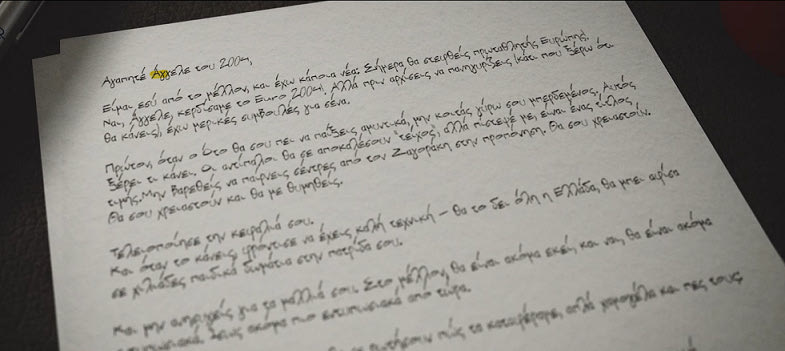 Αγαπητέ Άγγελε του 2004,
Είμαι εσύ από το μέλλον, και έχω κάποια νέα: Σήμερα θα στεφθείς πρωταθλητής Ευρώπης!
Ναι, Άγγελε, κερδίσαμε το Euro 2004! Αλλά πριν αρχίσεις να πανηγυρίζεις (κάτι που ξέρω ότι
θα κάνεις), έχω μερικές συμβουλές για σένα.
Πρώτον, όταν ο Ότο θα σου πει να παίξεις αμυντικά, μην κοιτάς γύρω σου μπερδεμένος. Αυτός
ξέρει τι κάνει. Οι αντίπαλοι θα σε αποκαλέσουν τείχος, αλλά πίστεψέ με, είναι ένας τίτλος
τιμής. Μην βαρεθείς να παίρνεις σέντρες από τον Ζαγοράκη στην προπόνηση. Θα σου χρειαστούν.
Θα σου χρειαστούν και θα με θυμηθείς.
Τελειοποίησε την κεφαλιά σου.
Και όταν το κάνεις, φρόντισε να έχεις καλή τεχνική – θα το δει όλη η Ελλάδα, θα μπει αφίσα
σε χιλιάδες παιδικά δωμάτια στην πατρίδα σου.
Και μην ανησυχείς για τα μαλλιά σου. Στο μέλλον, θα είναι ακόμα εκεί, και ναι, θα είναι ακόμα
εντυπωσιακά. Ίσως ακόμα πιο εντυπωσιακά από τώρα.
πώς τα καταφέραμε, απλά χαμογέλα και πες τους